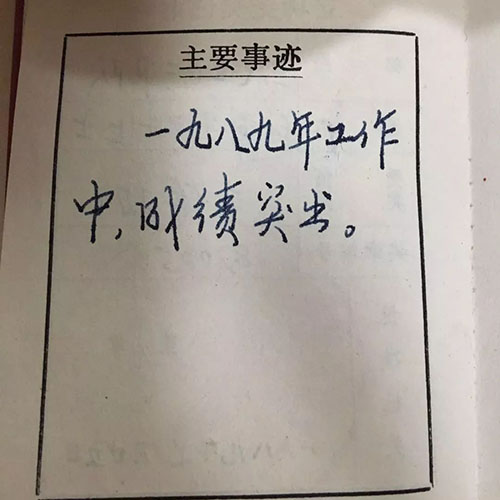 主要事迹
一九八九年工作
中,成绩突出。